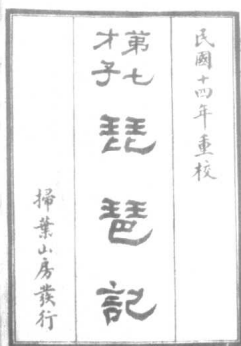 民國十四年重校
第七才子
琵琶記
掃葉山房發行